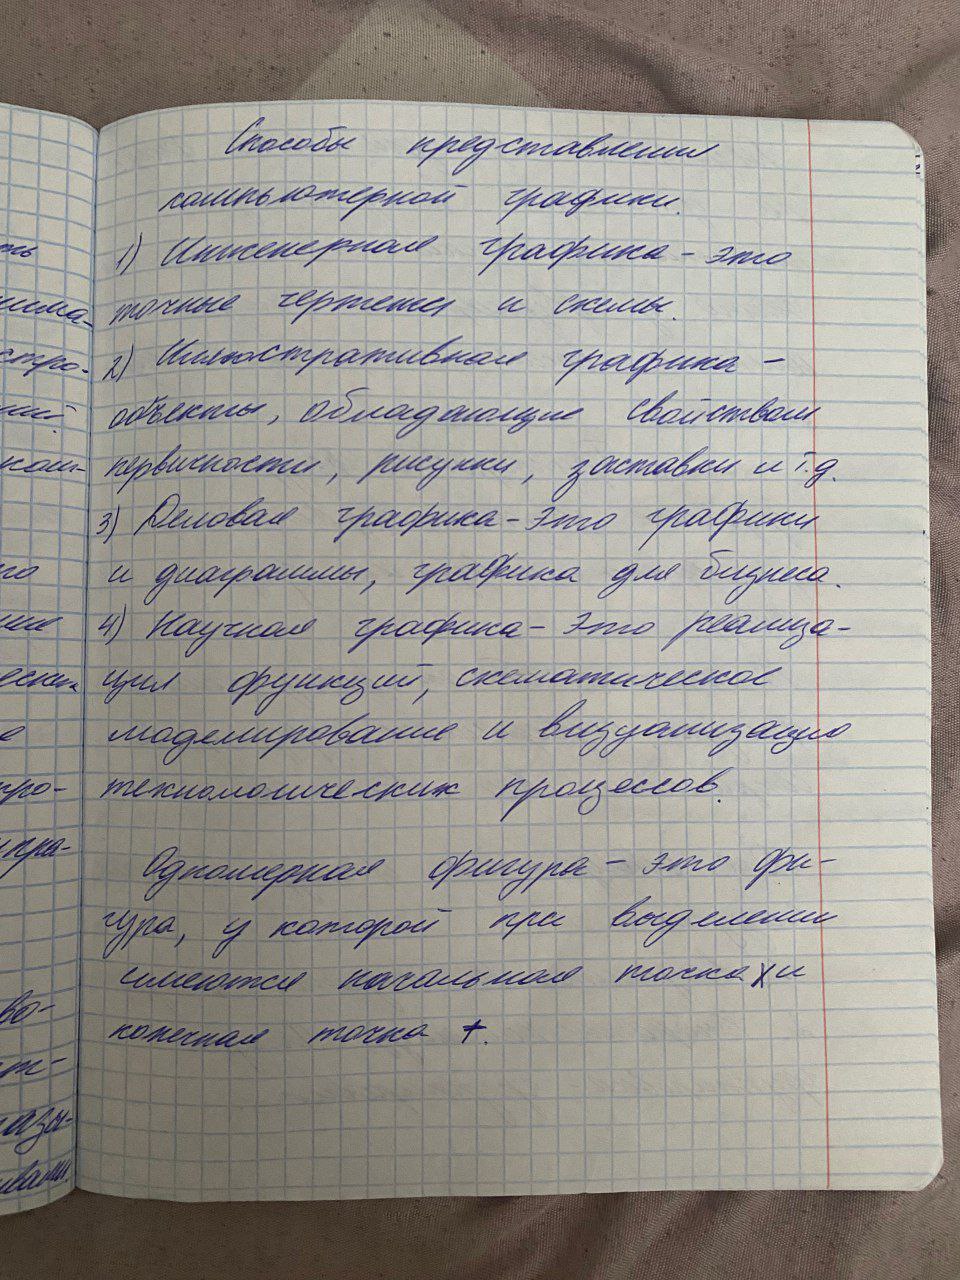 Способы представления
компьютерной графики.
1) Инженерная графика – это
точные чертежи и схемы.
2) Иллюстративная графика –
объекты, обладающие свойством
первичности, рисунки, заставки и т.д.
3) Деловая графика – это графики
и диаграммы, графика для бизнеса.
4) Научная графика – это реализа-
ция функций, схематическое
моделирование и визуализацию
технологических процессов.
Одномерная фигура – это фи-
гура, у которой при выделении
имеются начальная точка х и
конечная точка +.